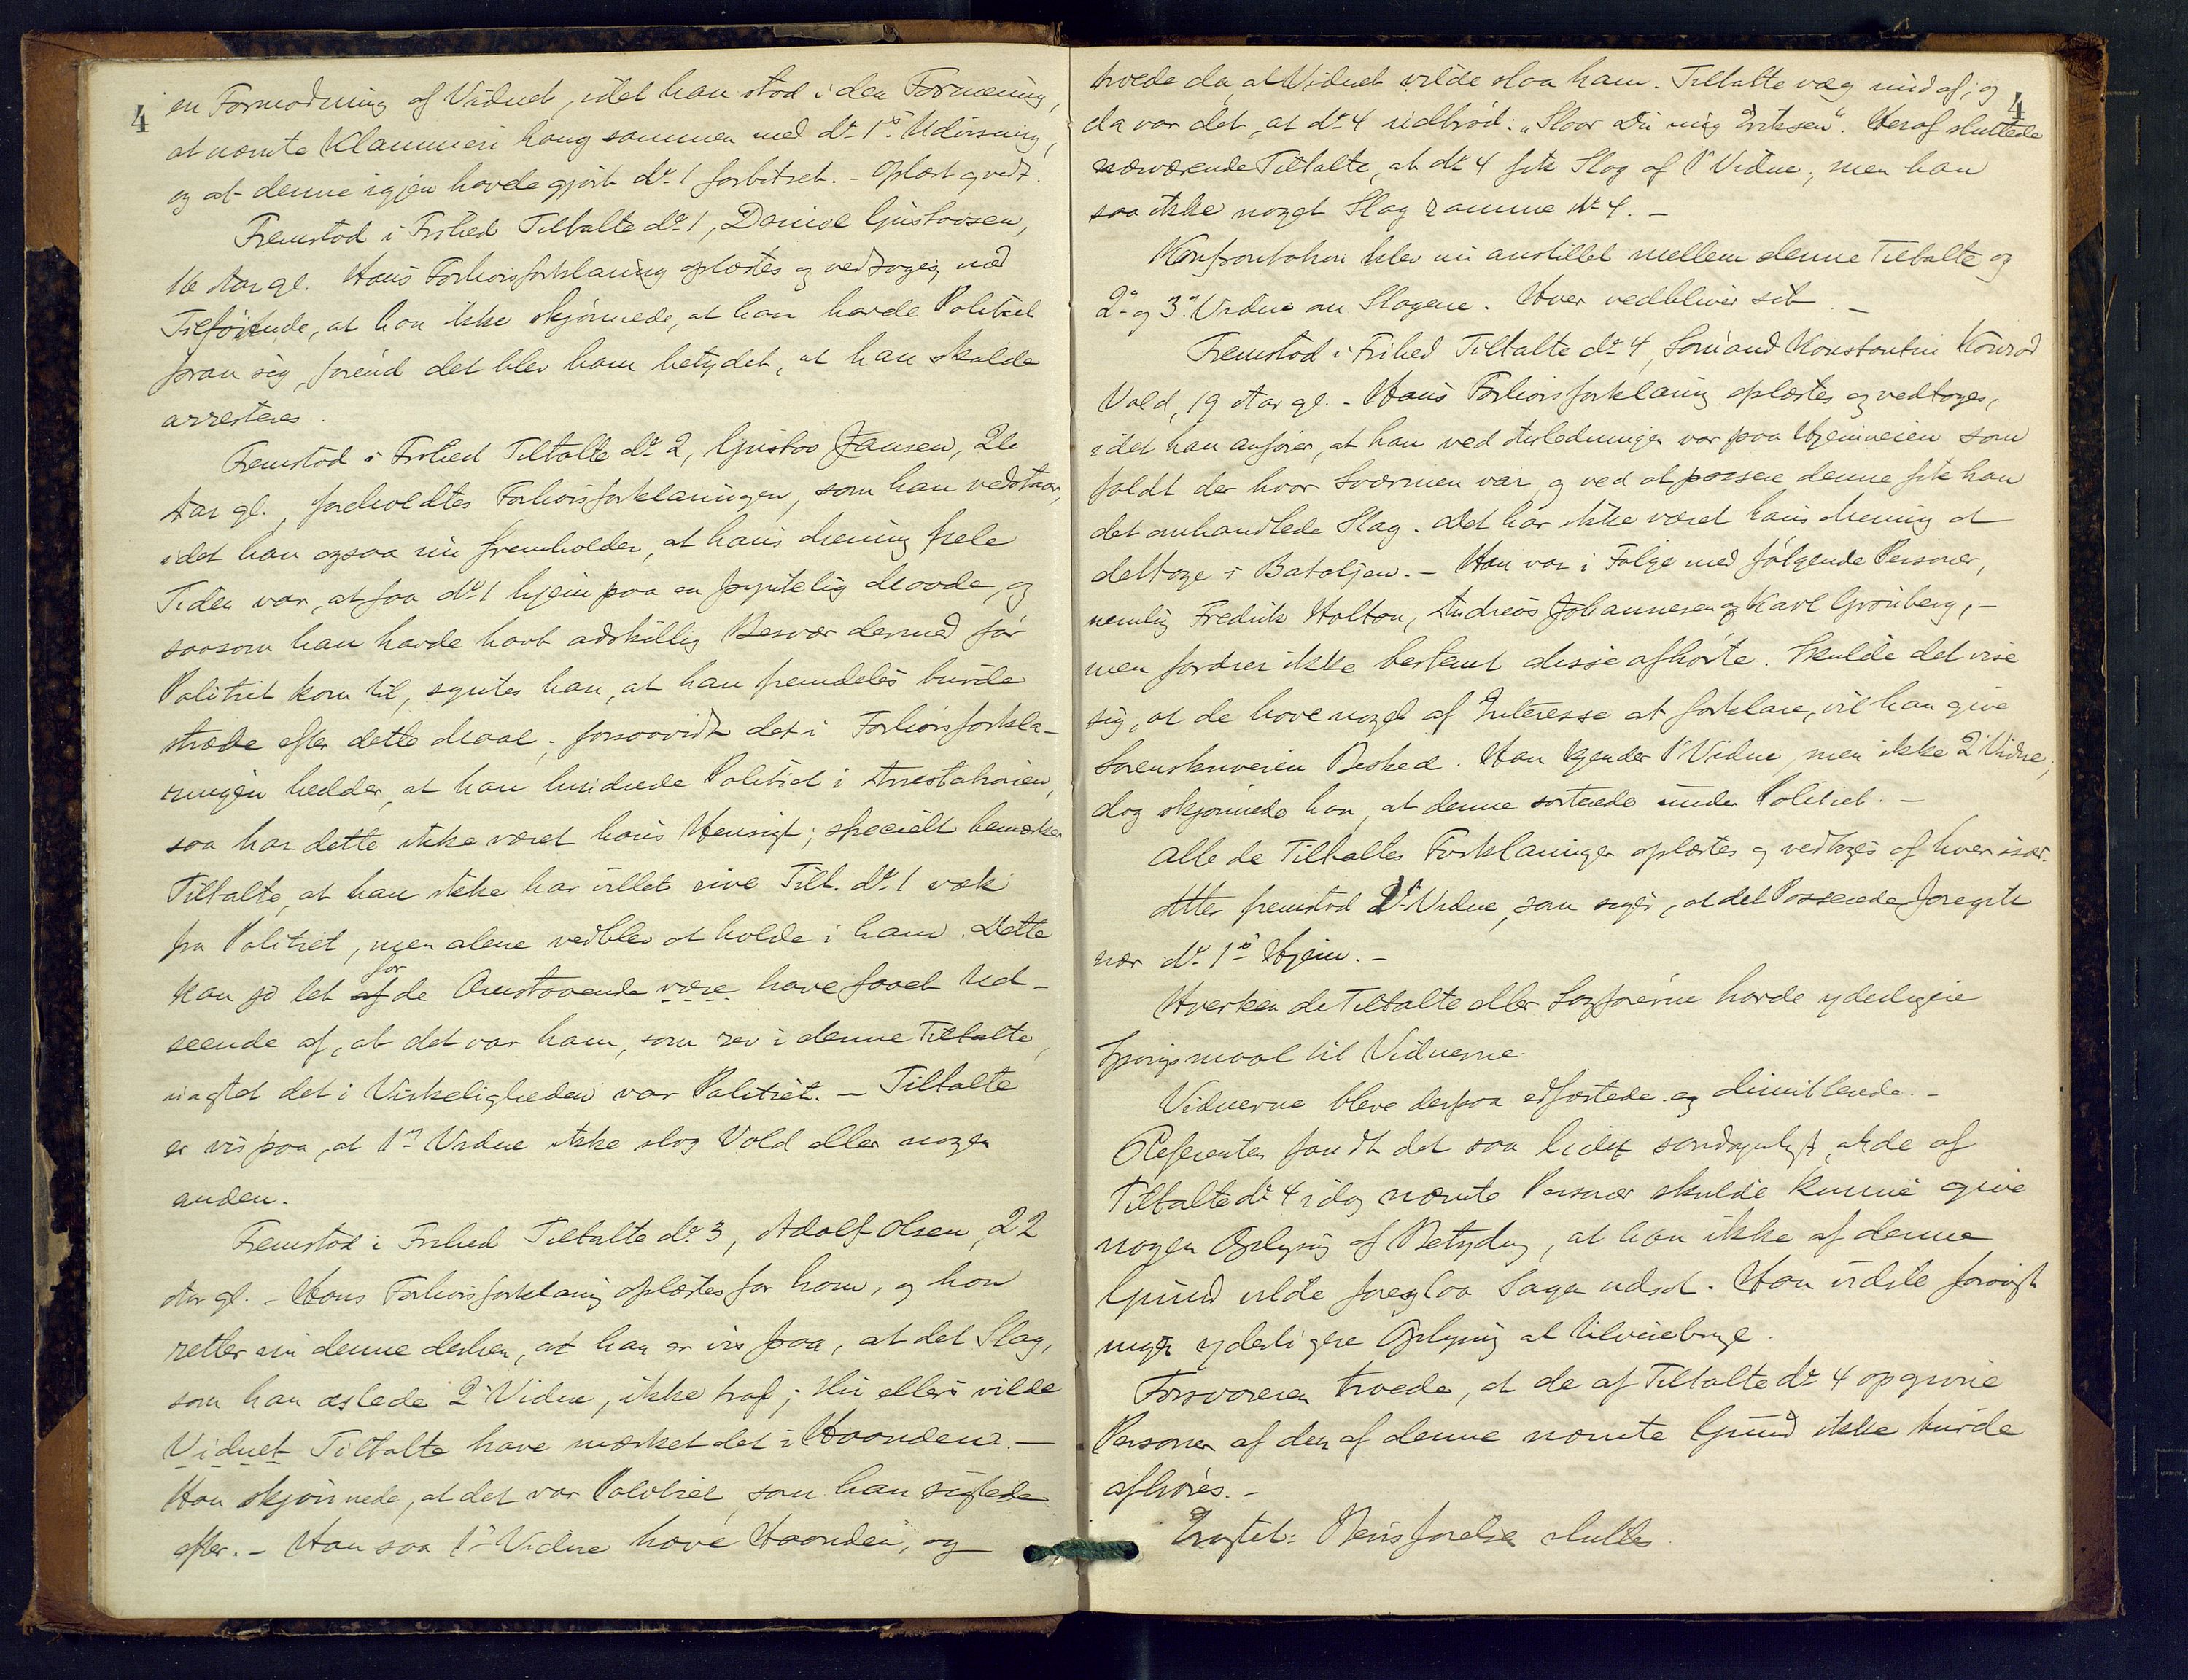 4
en Formodning af Vidnet, idet han stod i den Formening,
at nævnte Klammeri hang sammen med No 1s Udvisning,
og at denne igjen havde gjort No 1 forbitret. - Oplæst og vedt.
Fremstod i Frihed Tiltalte No 1, Daniel Gustavsen,
16 Aar gl. Hans Forhørsforklaring oplæstes og vedtoges med
Tilføiende, at han ikke skjønnede, at han havde Politiet
foran sig, førend det blev ham betydet, at han skulde
arresteres.
Fremstod i Frihed Tiltalte No 2, Gustav Jansen, 26
Aar gl., foreholdtes Forhørsforklaringen, som han vedstaar,
idet han ogsaa nu fremholder, at hans Mening hele
Tiden var, at faa No 1 hjem paa en fyntelig Maade, og
saasom han havde havt adskillig Besvær dermed før
Politiet kom til, syntes han, at han fremdeles burde
stræbe efter dette Maal; forsaavidt det i Forhørsforkla-
ringen hedder, at han hindrede Politiet i Arrestationen,
saa har dette ikke været hans Hensigt; specielt bemærker
Tiltalte, at han ikke har villet rive Tilt. No 1 væk
fra Politiet, men alene vedblev at holde i ham. Dette
kan jo let af for de Omstaaende være have faaet Ud-
seende af, at det var ham, som rev i denne Tiltalte,
uagtet det i Virkeligheden var Politiet. - Tiltalte
er vis paa, at 1ste Vidne ikke slog Vold eller nogen
anden.
Fremstod i Frihed Tiltalte No 3, Adolf Olsen, 22
Aar gl. - Hans Forhørsforklaring oplæstes for ham, og han
retter nu denne derhen, at han er vis paa, at det Slag,
som han æslede 2det Vidne, ikke traf; thi ellers vilde
Vidnet Tiltalte have mærket det i Haanden. -
Han skjønnede, at det var Politiet, som han sigtede
efter. - Han saa 1ste Vidne hæve Haanden, og
4
troede da, at Vidnet vilde slaa ham. Tiltalte veg unda, og
da var det, at No 4 udbrød: "Slaar Du mig Eriksen". Heraf sluttede
nærværende Tiltalte, at No 4 fik Slag af 1ste Vidne, men han
saa ikke noget Slag ramme No 4. -
Konfrontation blev nu anstillet mellem denne Tiltalte og
2det og 3die Vidne om Slagene. Hver vedbliver sit. -
Fremstod i Frihed Tiltalte No 4, Sømand Konstantin Konrad
Vold, 19 Aar gl. - Hans Forhørsforklaring oplæstes og vedtoges,
idet han anfører, at han ved Anledningen var paa Hjemveien som
faldt der hvor Sværmen var, og ved at passere denne fik han
det omhandlede Slag. Det har ikke været hans Mening at
deltage i Bataljen. - Han var i Følge med følgende Personer,
nemlig Fredrik Holton, Andreas Johannesen og Karl Grønberg, -
men fordrer ikke bestemt disse afhørte. Skulde det vise
sig, at de have noget af Interesse at forklare, vil han give
Sorenskriveren Besked. Han kjender 1ste Vidne, men ikke 2det Vidne;
dog skjønnede han, at denne sorterede under Politiet. -
Alle de Tiltaltes Forklaringer oplæstes og vedtoges af hver især.
Atter fremstod Vidne, som siger, at det Passerede foregik
nær No 1s Hjem. -
Hverken de Tiltalte eller Sagførerne havde yderligere
Spørgsmaal til Vidnerne.
Vidnerne bleve derpaa edfæstede og dimitterede. -
Referenten fandt det saa lidet sandsynligt, at de af
Tiltalte No 4 idag nævnte Personer skulde kunne give
nogen Oplysning af Betydning, at han ikke af denne
Grund vilde foreslaa Sagen udsat. Han vidste forøvrigt
ingen yderligere Oplysning at tilveiebringe.
Forsvareren troede, at de af Tiltalte No 4 opgivne
Personer af den af denne nævnte Grund ikke burde
afhøres. -
Eragtet: Bevisførelsen sluttes.